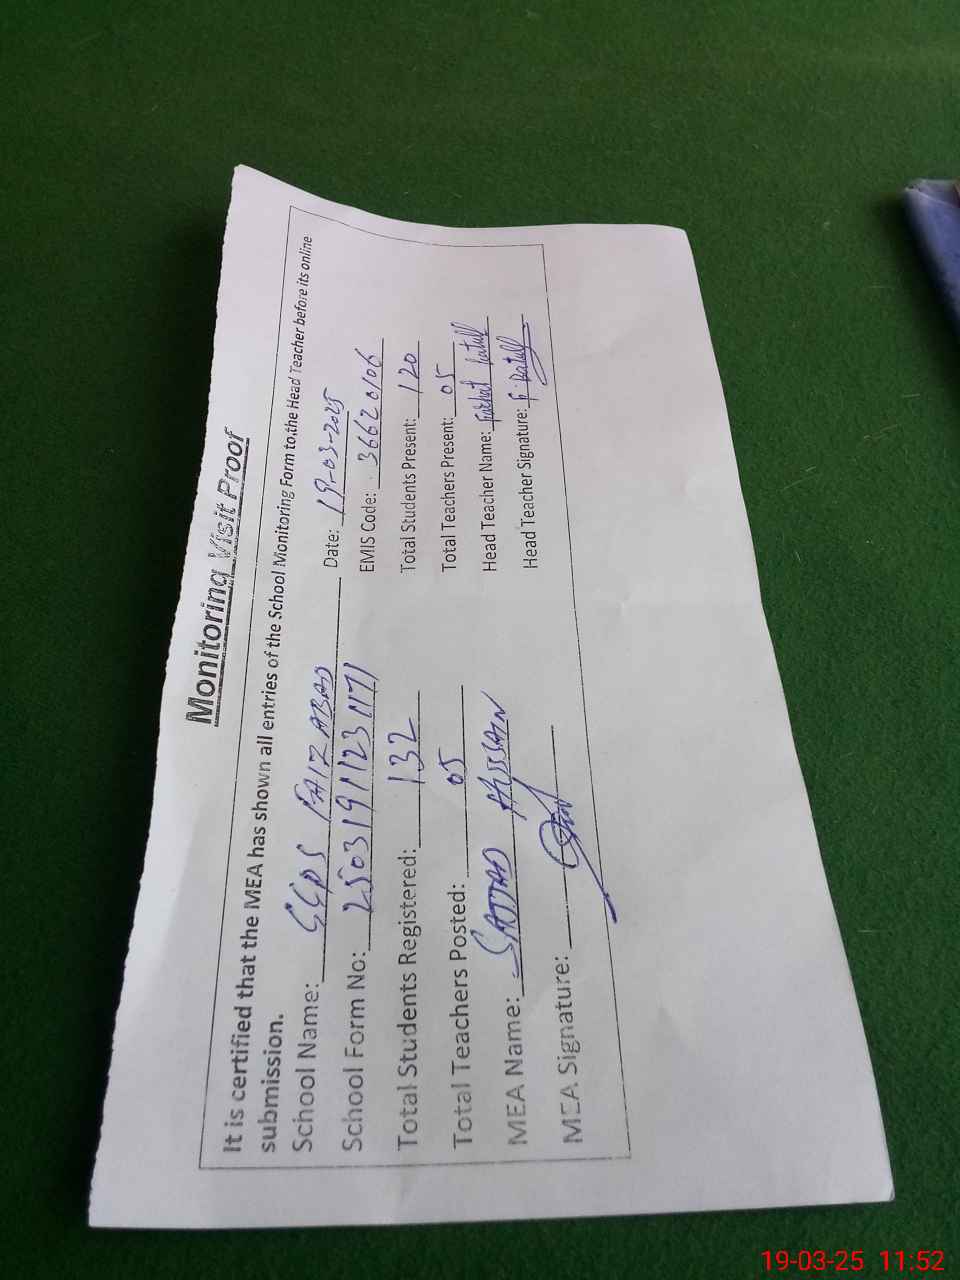 Monitoring Visit Proof
It is certified that the MEA has shown all entries of the School Monitoring Form to the Head Teacher before its online
submission.
School Name: GGPS FAIZ ABAD Date: 19-03-2025
School Form No: 25031911231171 EMIS Code: 36620106
Total Students Registered: 132 Total Students Present: 120
Total Teachers Posted: 05 Total Teachers Present: 05
MEA Name: SAJJAD HUSSAIN Head Teacher Name: Farhat
MEA Signature: Head Teacher Signature:
19-03-25 11:52